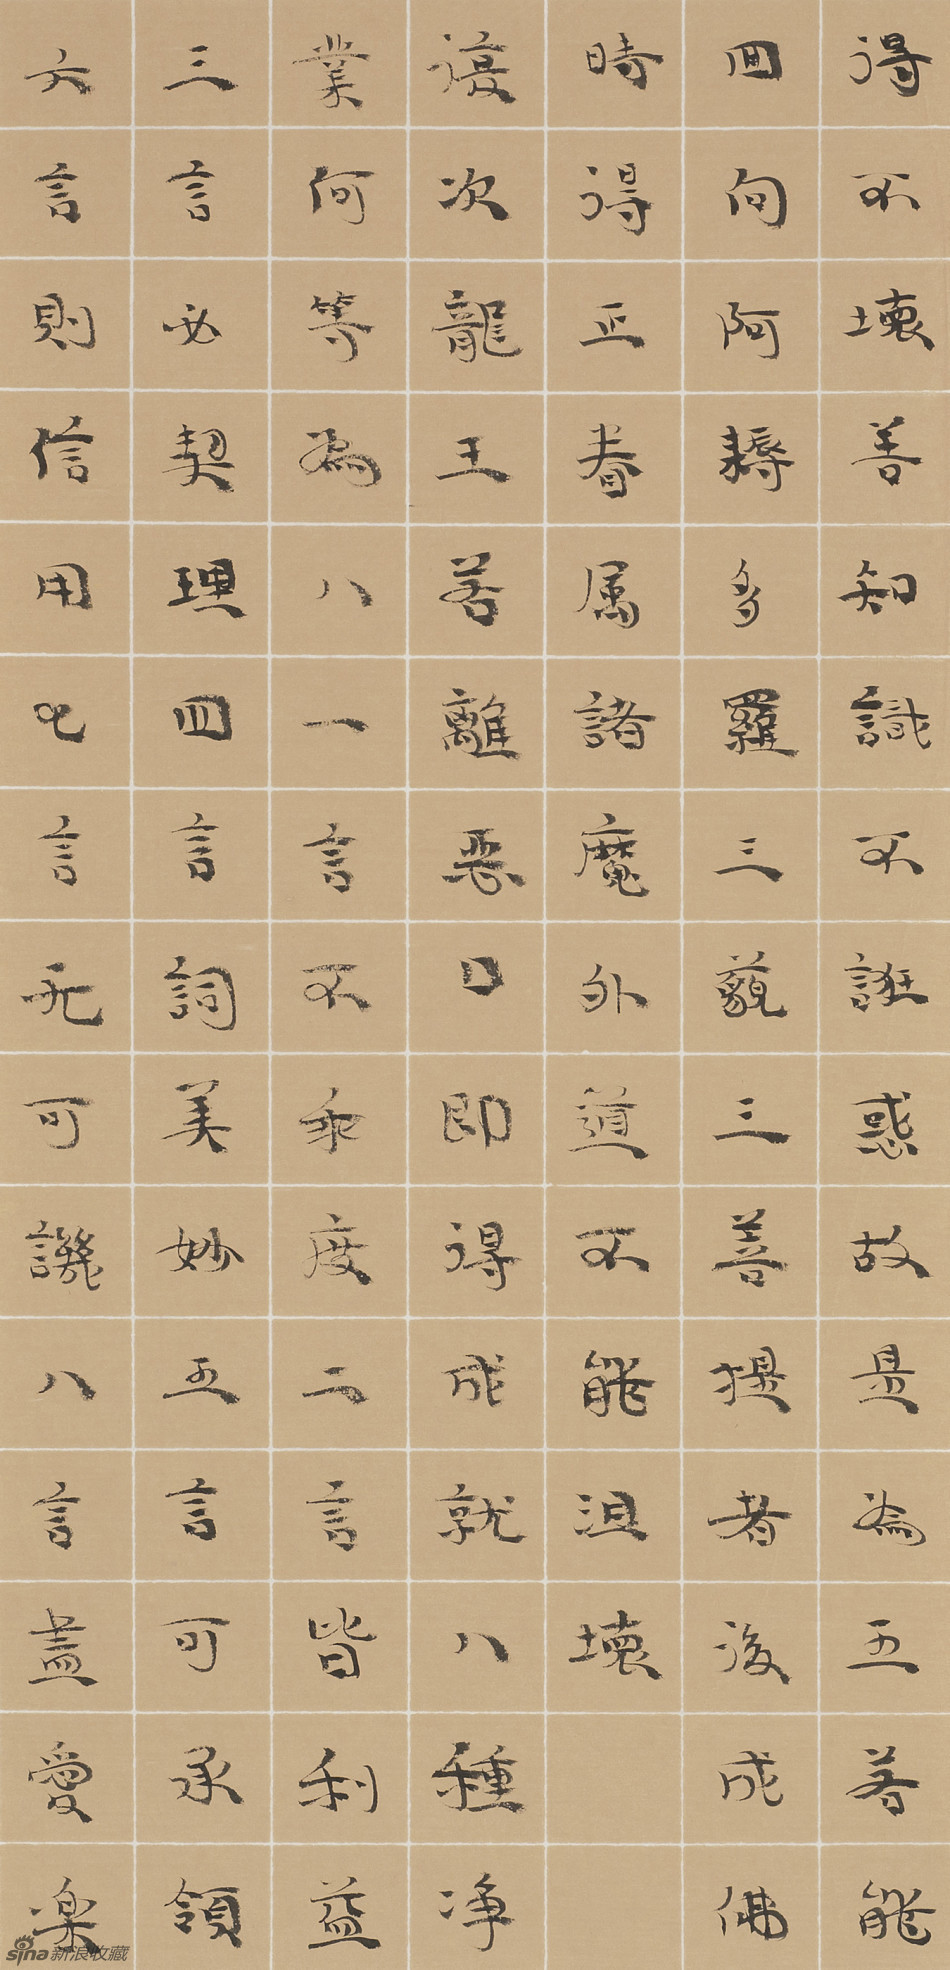 得不壞善知識不誑惑故是為五若能
回向阿耨多羅三藐三菩提者後成佛
時得正眷属諸魔外道不能沮壞
復次龍王若離惡口即得成就八種净
業何等為八一言不乖度二言皆利益
三言必契理四言詞美妙五言可承領
六言則信用七言无可譏八言盡愛楽
sina新浪收藏